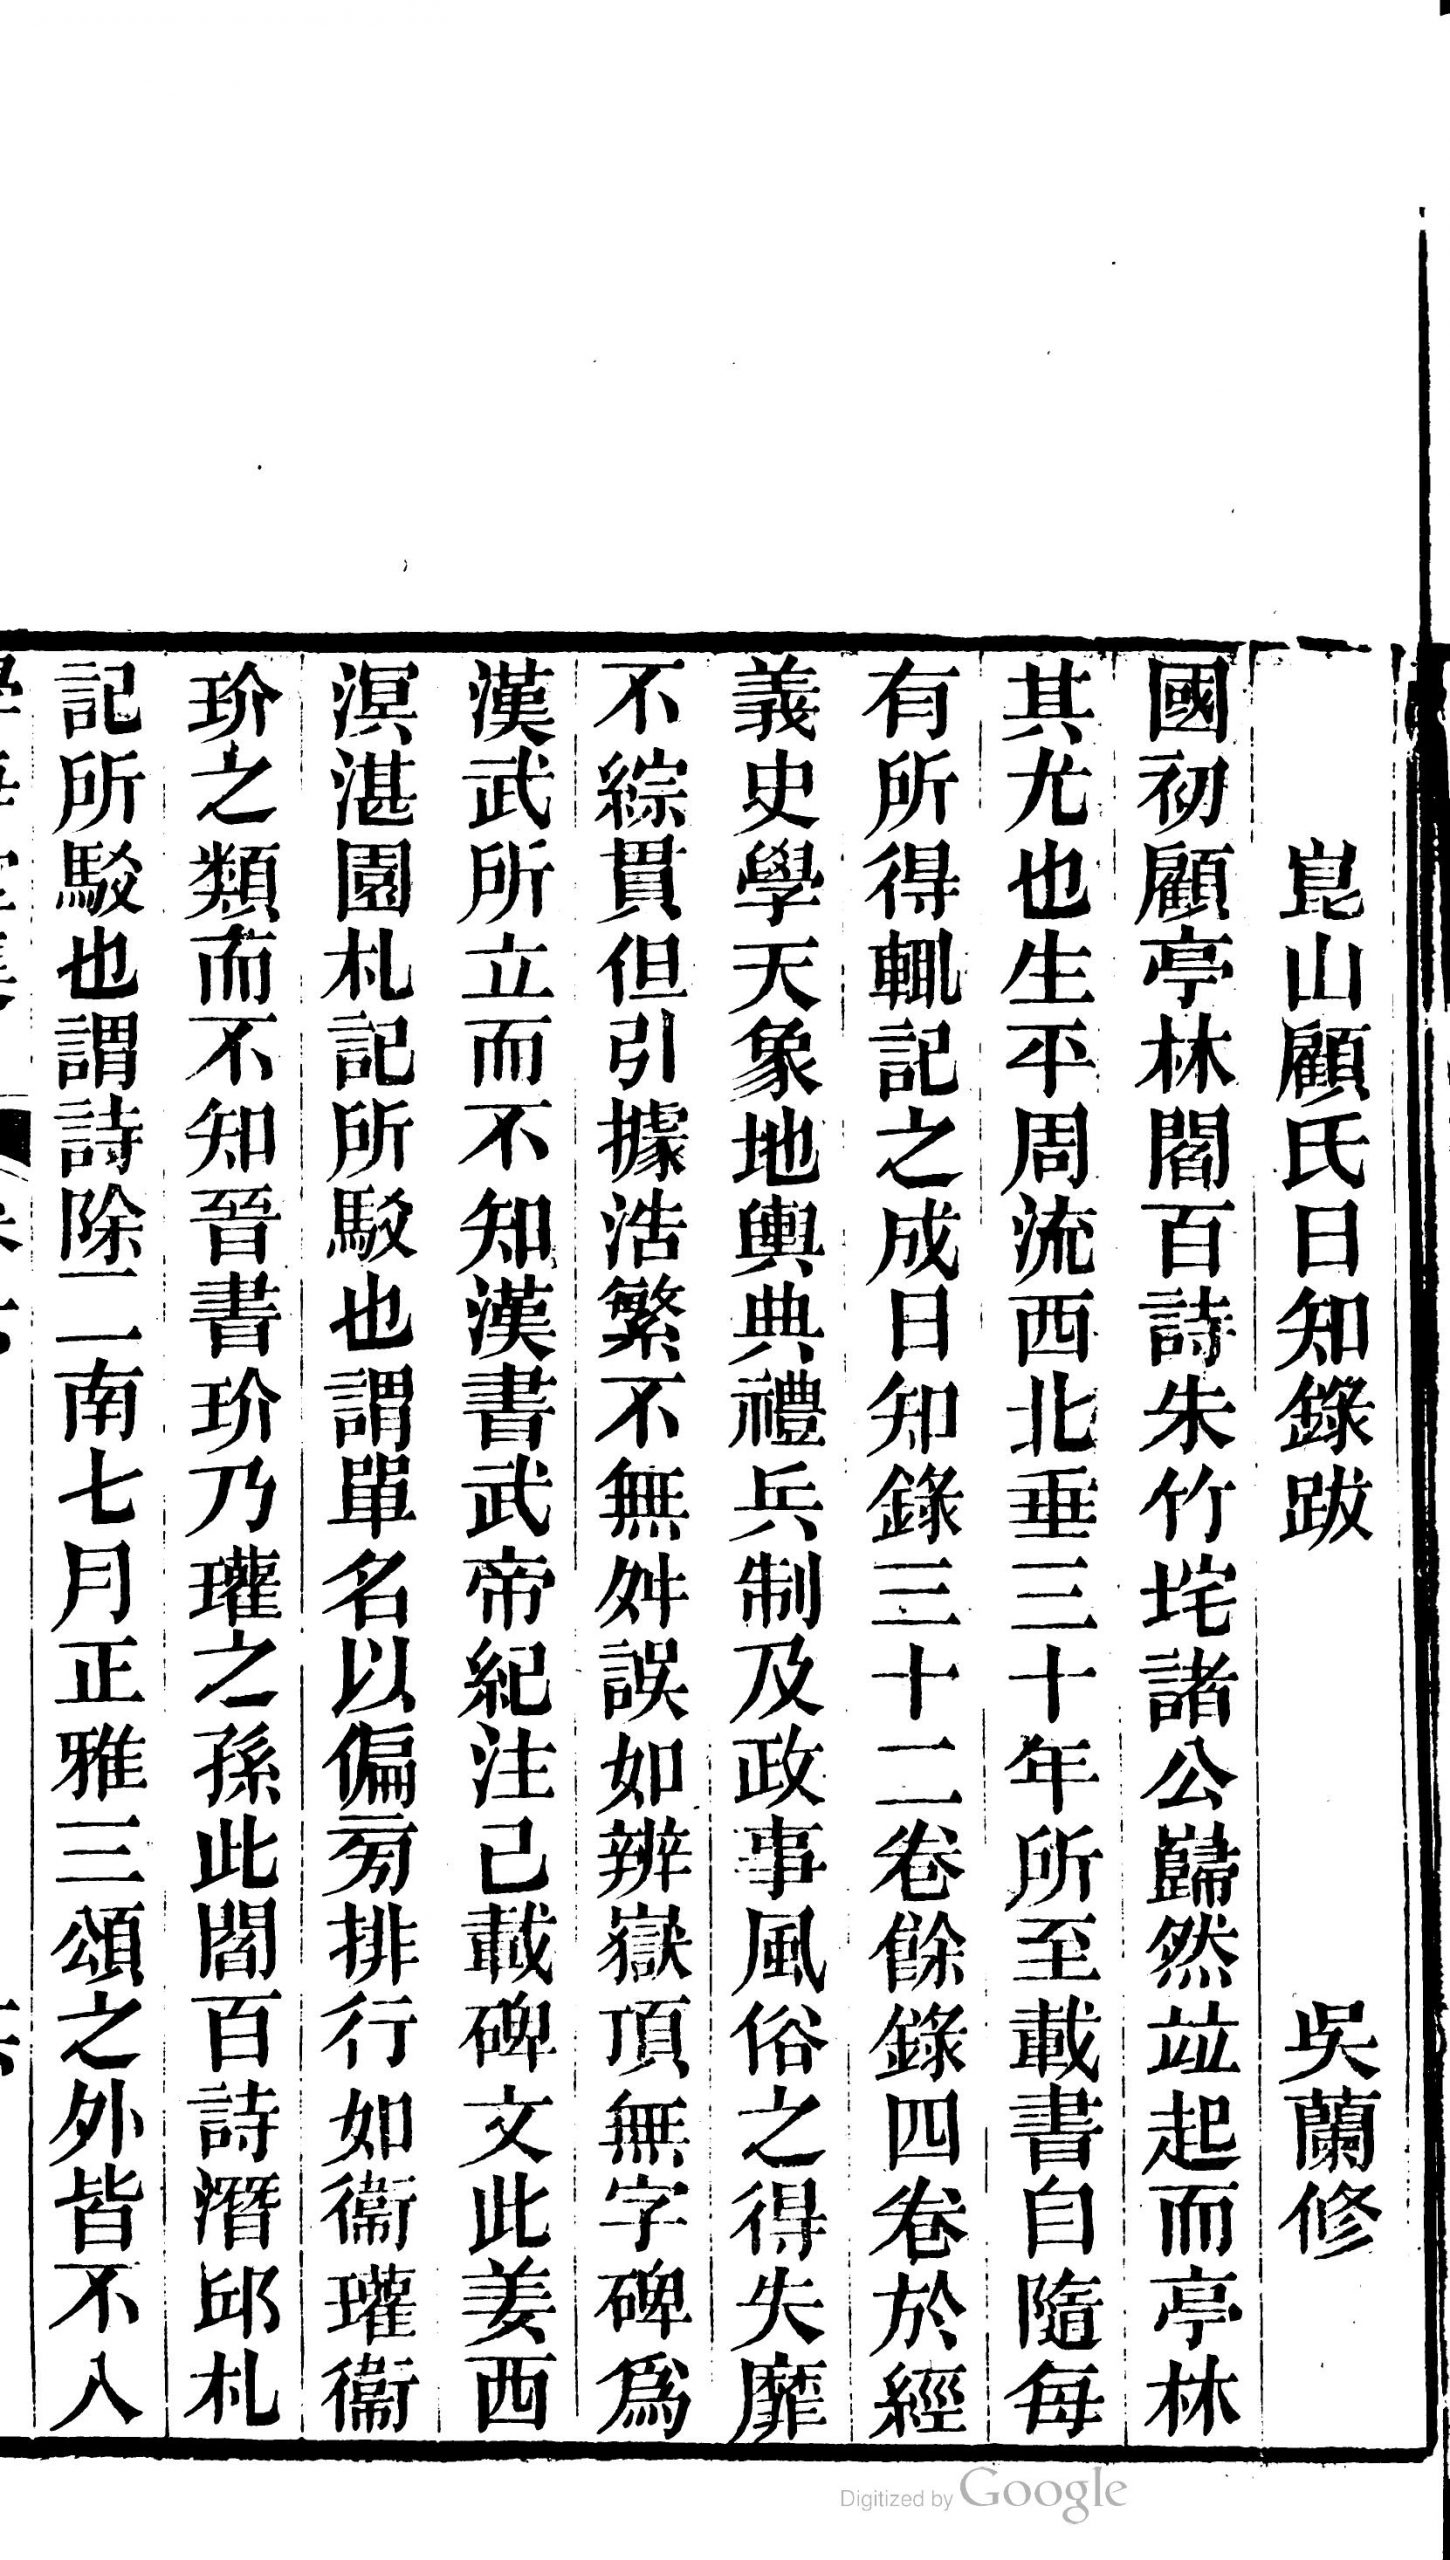 崑山顧氏日知錄跋 吳蘭修
國初顧亭林閻百詩朱竹垞諸公巋然竝起而亭林
其尤也生平周流西北垂三十年所至載書自隨每
有所得輒記之成日知錄三十二卷餘錄四卷於經
義史學天象地輿典禮兵制及政事風俗之得失靡
不綜貫但引據浩繁不無舛誤如辨嶽頂無字碑爲
漢武所立而不知漢書武帝紀注已載碑文此姜西
溟湛園札記所駁也謂單名以偏旁排行如衞瓘衞
玠之類而不知晉書玠乃瓘之孫此閻百詩潛邱札
記所駁也謂詩除二南七月正雅三頌之外皆不入
Digitized by Google